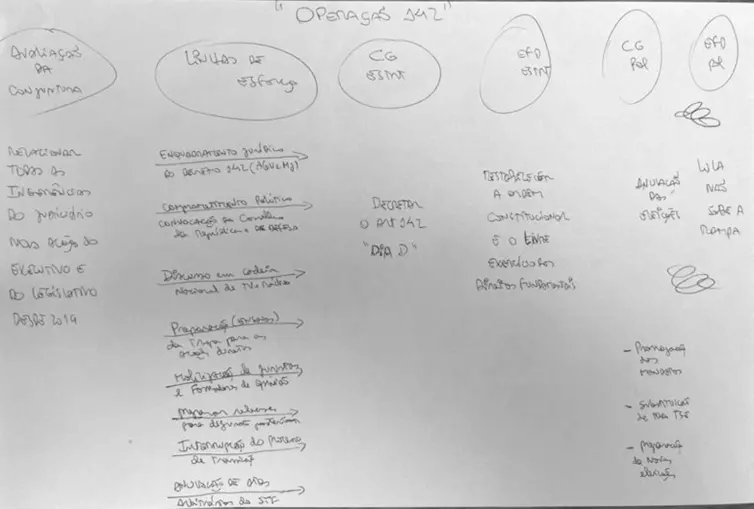 "OPERAÇÃO 142"
AVALIAÇÃO
DA
CONJUNTURA
LINHAS DE
ESFORÇO
CG
ESTRT
EFD
ESTRT
CG
POL
EFD
POL
RELACIONAR
TODAS AS
INGERÊNCIAS
DO JUDICIÁRIO
NAS AÇÕES DO
EXECUTIVO E
DO LEGISLATIVO
DESDE 2019
ENQUADRAMENTO JURÍDICO
DO DECRETO 142 (AGU e MJ)
COMPROMETIMENTO POLÍTICO
CONVOCAÇÃO do Conselho
da República e DA DEFESA
Discurso em cadeia
Nacional de TV e Rádio
Preparação
da Tropa para as
ações diretas
Mobilização de juristas
e Formadores de opinião
para discursos
Interrupção do Processo
de Transição
ANULAÇÃO DE ATOS
Arbitrários do STF
DECRETAR
O ART 142
"DIA D"
RESTABELECER
A ORDEM
CONSTITUCIONAL
E O LIVRE
EXERCÍCIO DOS
DIREITOS FUNDAMENTAIS
ANULAÇÃO
DAS
ELEIÇÕES
LULA
NÃO
SOBE A
RAMPA
- Prorrogação
dos
MANDATOS
- SUBSTITUIÇÃO
DE TODO TSE
- PREPARAÇÃO
de Novas
eleições